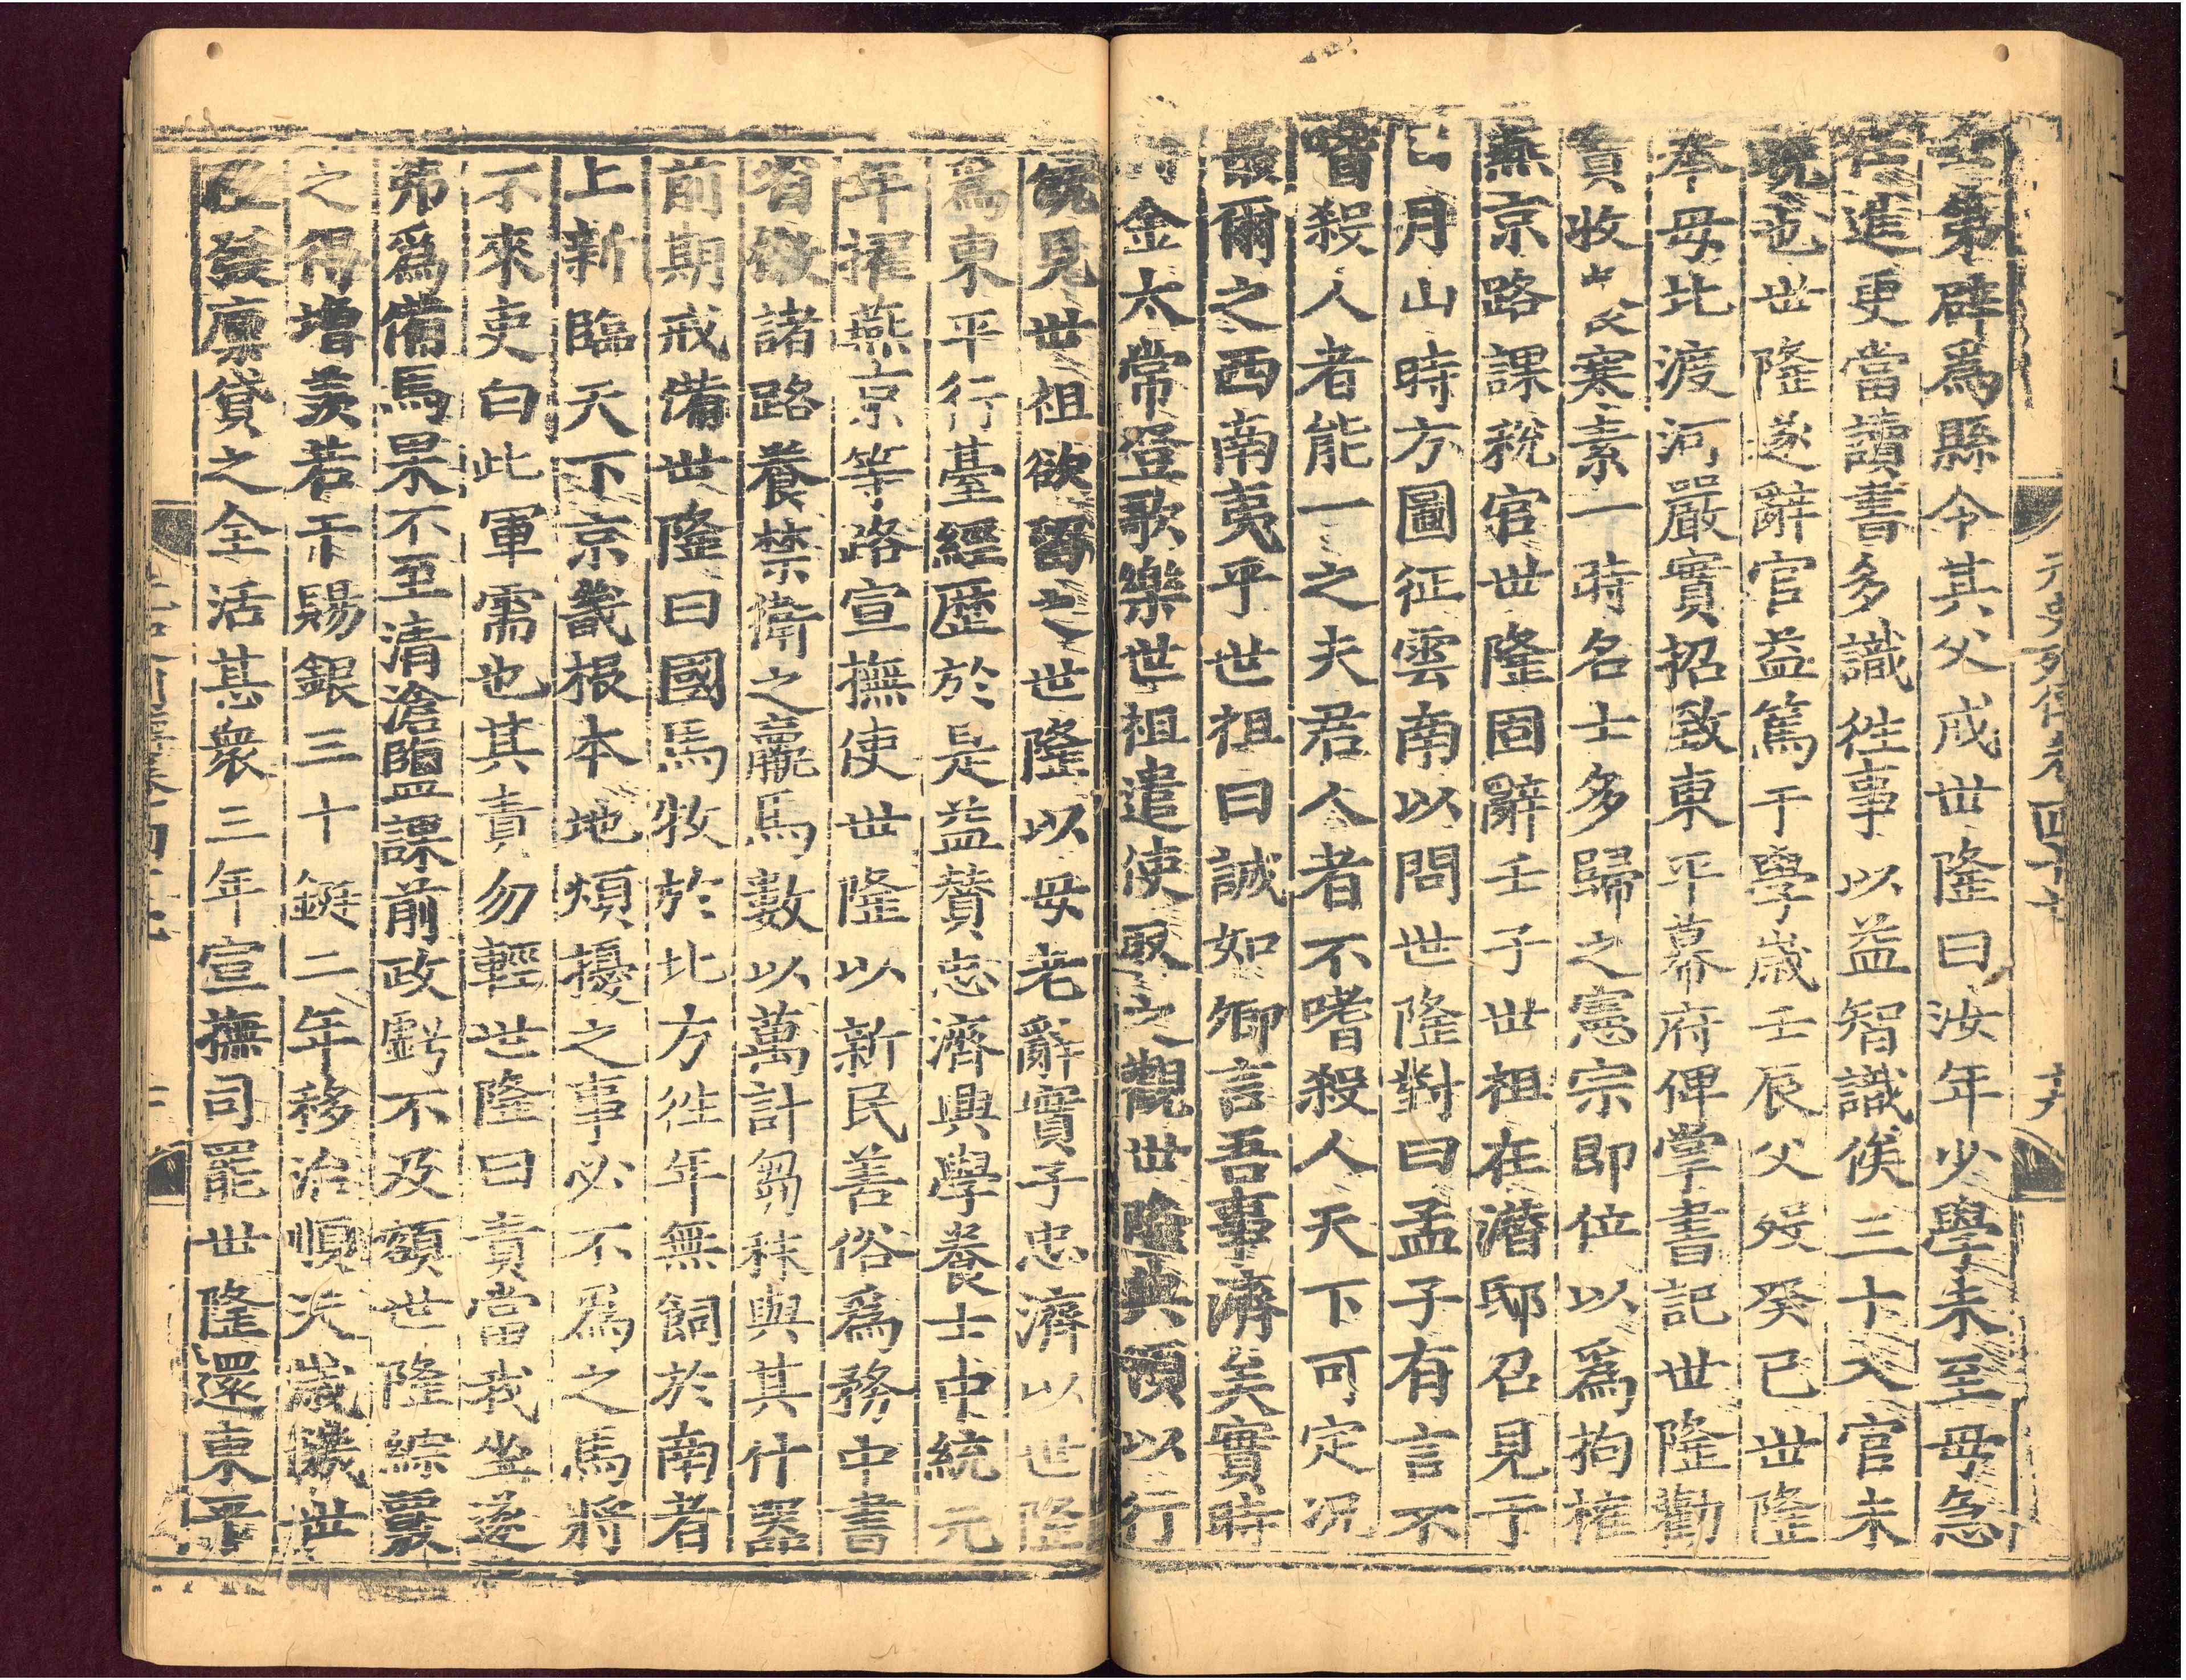 登第辟爲縣令其父戒世隆曰汝年少學未至毋急
仕進更當讀書多識徃事以益智識俟三十入官未
晚也世隆遂辭官益篤于學歲壬辰父歿癸巳世隆
奉母北渡河嚴實招致東平幕府俾掌書記世隆勸
實收父寒素一時名士多歸之憲宗即位以爲拘榷
燕京路課稅官世隆固辭壬子世祖在潛邸召見于
日月山時方圖征雲南以問世隆對曰孟子有言不
嗜殺人者能一之夫君人者不嗜殺人天下可定况
蕞爾之西南夷乎世祖曰誠如卿言吾事濟矣實時
得金太常登歌樂世祖遣使取之觀世隆典領以行
旣見世祖欲留之世隆以母老辭實子忠濟以世隆
爲東平行臺經歷於是益贊忠濟興學養士中統元
年擢燕京等路宣撫使世隆以新民善俗爲務中書
省檄諸路養禁衛之羸馬數以萬計芻秣與其什器
前期戒備世隆曰國馬牧於北方徃年無飼於南者
上新臨天下京畿根本地煩擾之事必不爲之馬將
不來吏白此軍需也其責勿輕世隆曰責當我坐遂
弗爲備馬果不至清滄鹽課前政虧不及額世隆綜覈
之得增羨若干賜銀三十鋌二年移治順天歲饑世
隆發廩貸之全活甚衆三年宣撫司罷世隆還東平
元史列傳卷四十七
十六